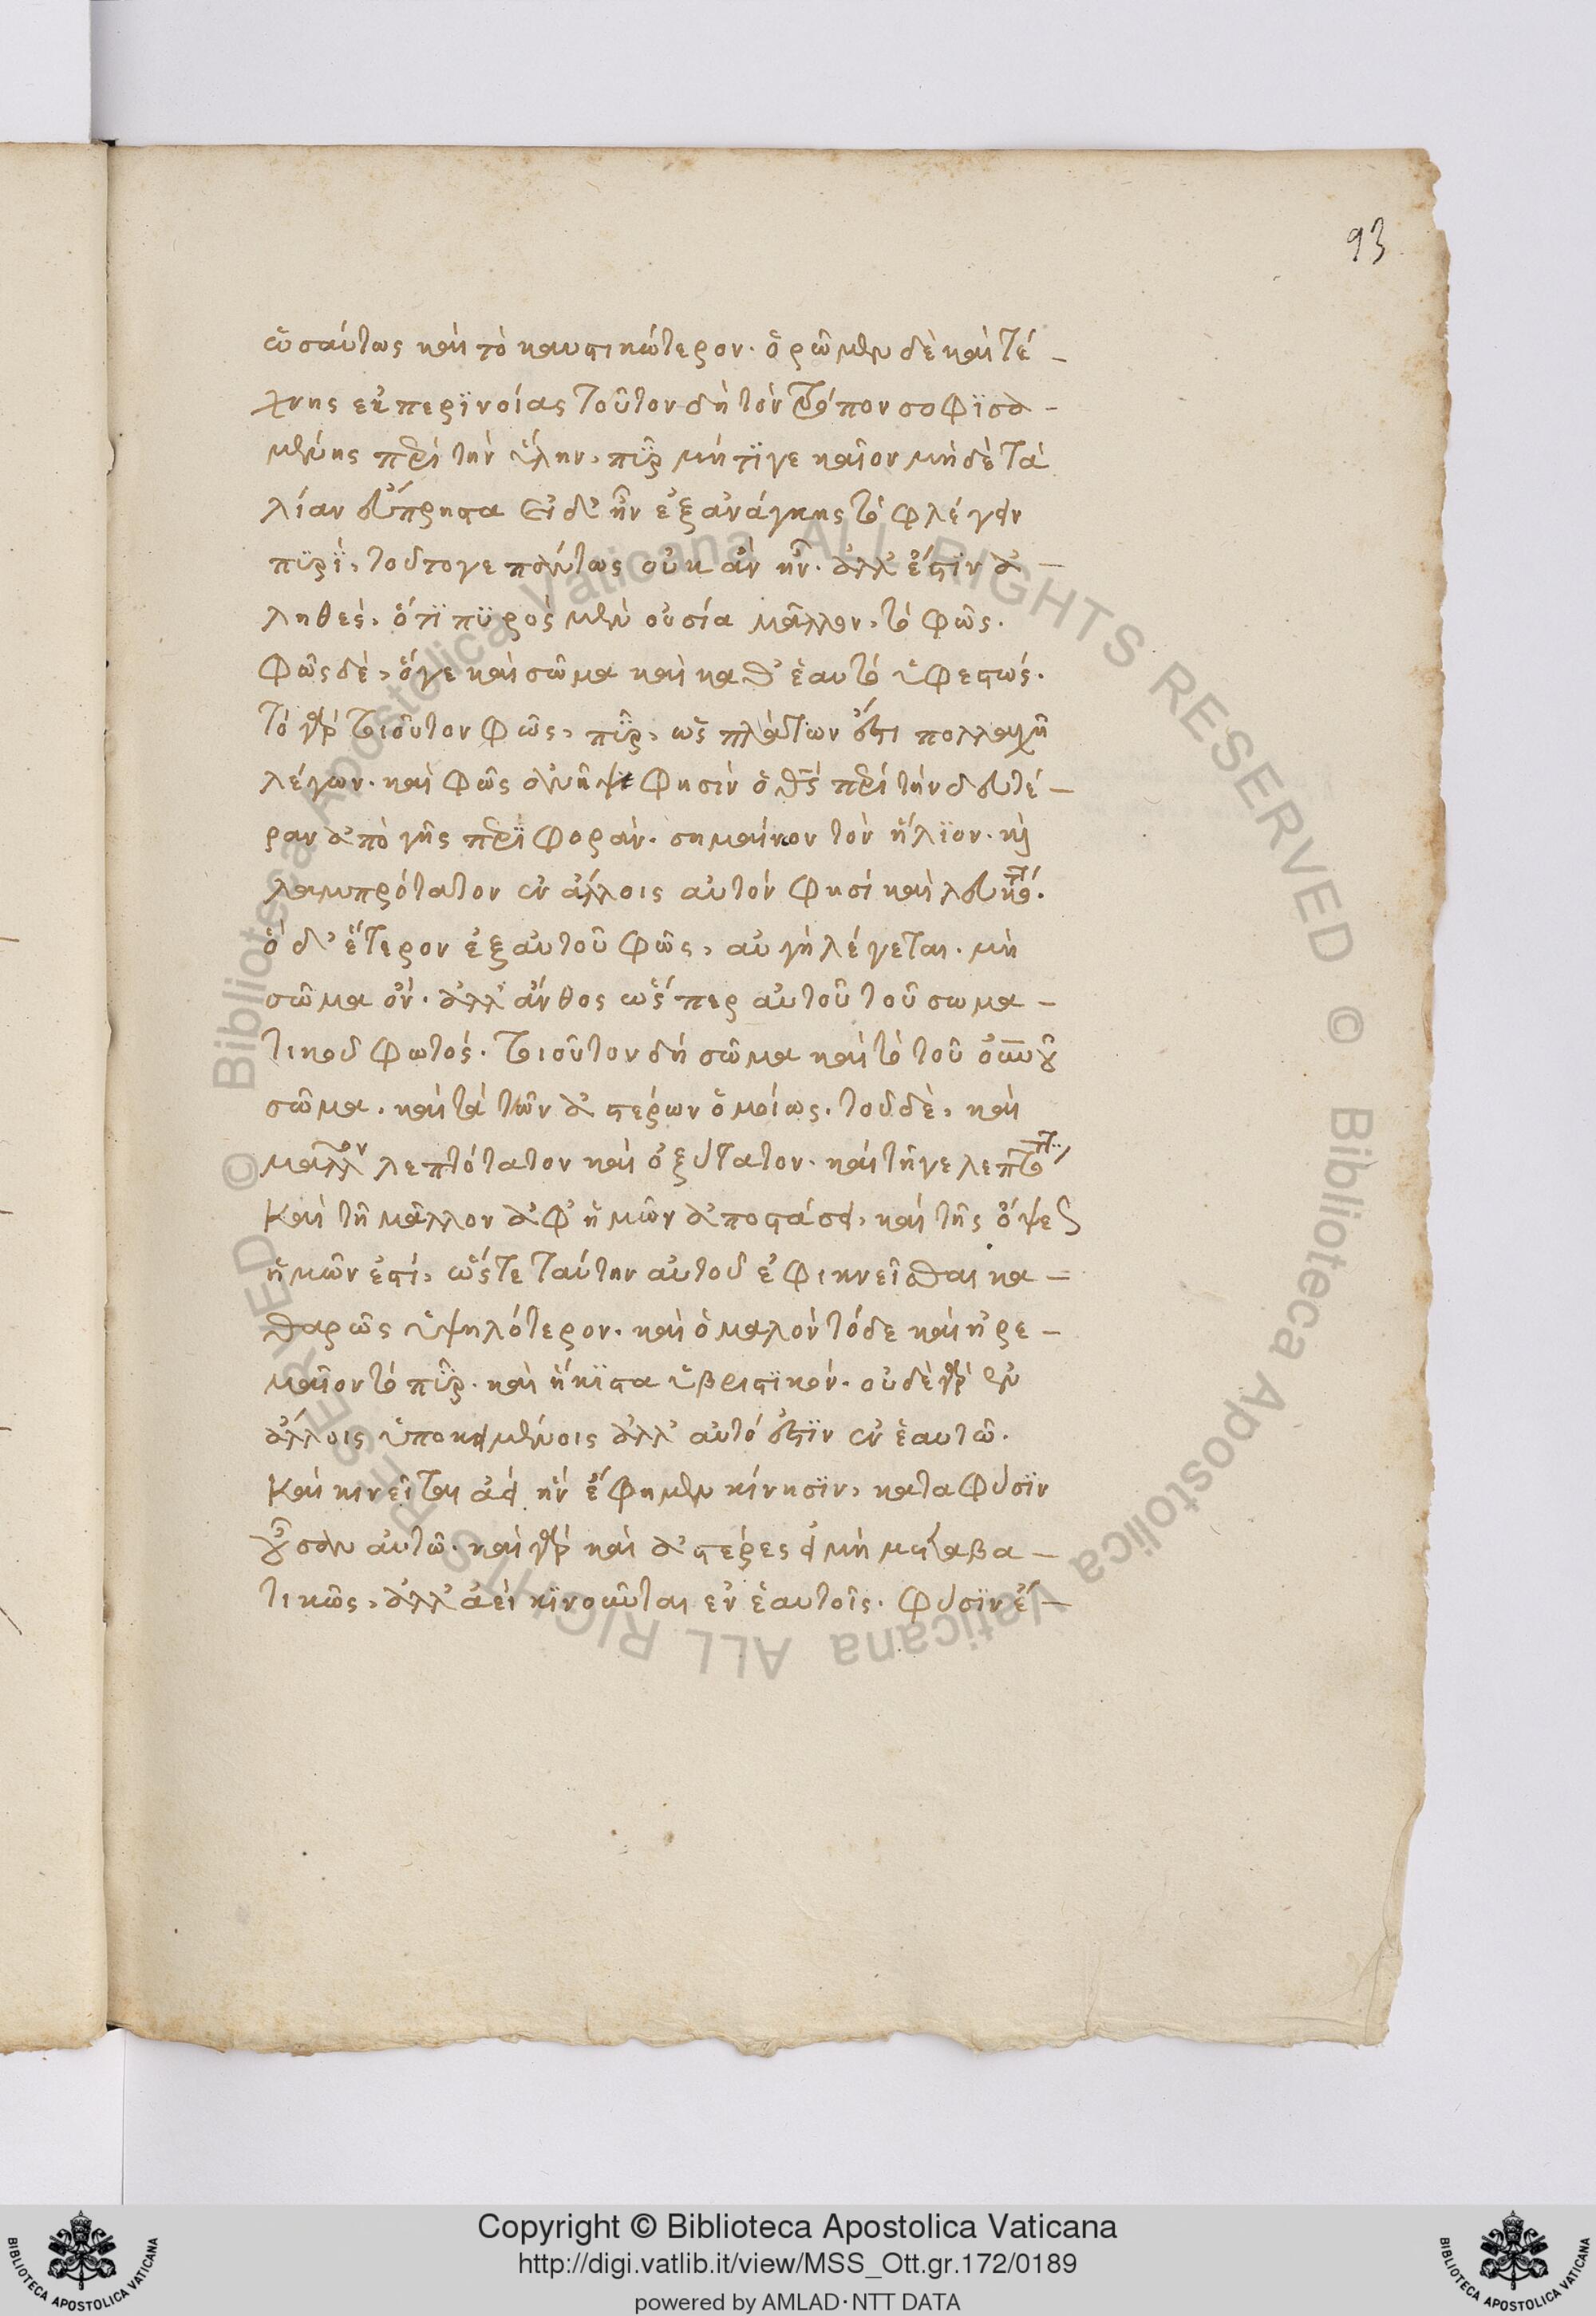 93
ὡσαύτως καὶ τὸ καυστικώτερον. ὁρῶμεν δὲ καὶ τέ-
χνης ἐκ περϊνοίας τοῦτον δὴ τὸν τρόπον σοφϊσα-
μένης περὶ τὴν ὕλην, πῦρ μήτϊγε καῖον μὴδὲ τὰ
λίαν εὔπρηστα εἰ δ' ἦν ἐξανάγκης τὸ φλέγειν
πϋρὶ, τοῦτογε πάντως οὐκ ἂν ἦν. ἀλλ' ἔστϊν ἀ-
ληθὲς, ὅτϊ πϋρὸς μὲν οὐσία μᾶλλον, τὸ φῶς.
Φῶς δὲ, ὅγε καὶ σῶμα καὶ καθ' ἑαυτὸ ὑφεστώς.
Τὸ γὰρ τοιοῦτον φῶς, πῦρ, ὡς πλάτων ἔστι πολλαχῆ
λέγων. καὶ φῶς ἀνῆψε φησὶν ὁ θεὸς περὶ τὴν δευτέ-
ραν ἀπὸ γῆς περϊφορὰν. σημαίνον τὸν ἥλϊον. καὶ
λαμπρότατον ἐν ἄλλοις αὐτόν φησί καὶ λευκότ
ὁ δ' ἕτερον ἐξ αὐτοῦ φῶς, αὐγὴ λέγεται. μὴ
σῶμα ὂν. ἀλλ' ἄνθος ὥσπερ αὐτοῦ τοῦ σωμα-
τικοῦ φωτός. τοιοῦτον δὴ σῶμα καὶ τὸ τοῦ οὐνοῦ
σῶμα. καὶ τὰ τῶν ἀστέρων ὁμοίως. τοῦδὲ, καὶ
μᾶλλον λεπτότατον καὶ ὀξύτατον. καὶ τῆγε λεπτότ
Καὶ τῆ μᾶλλον ἀφ' ἡμῶν ἀποστάσει, καὶ τῆς ὄψεως
ἡμῶν ἐστί, ὥστε ταύτην αὐτοῦ ἐφικνεῖσθαι κα-
θαρῶς ὑψηλότερον. καὶ ὁμαλὸν τόδε καὶ ἠρε-
μαῖον τὸ πῦρ. καὶ ἥκϊστα ὑβριστϊκόν. οὐδὲ γὰρ ἐν
ἄλλοις ὑποκειμένοις ἀλλ' αὐτό ἐστϊν ἐν ἑαυτῶ.
Καὶ κινεῖται ἀεὶ ἣν ἔφημεν κίνησϊν, κατα φύσϊν
οὖσαν αὐτῶ. καὶ γὰρ καὶ ἀστέρες εἰ μὴ μεταβα-
τικῶς, ἀλλ' ἀεὶ κϊνοῦνται ἐν ἑαυτοῖς. φύσϊν ἔ-
Copyright © Biblioteca Apostolica Vaticana
http://digi.vatlib.it/view/MSS_Ott.gr.172/0189
powered by AMLAD·NTT DATA